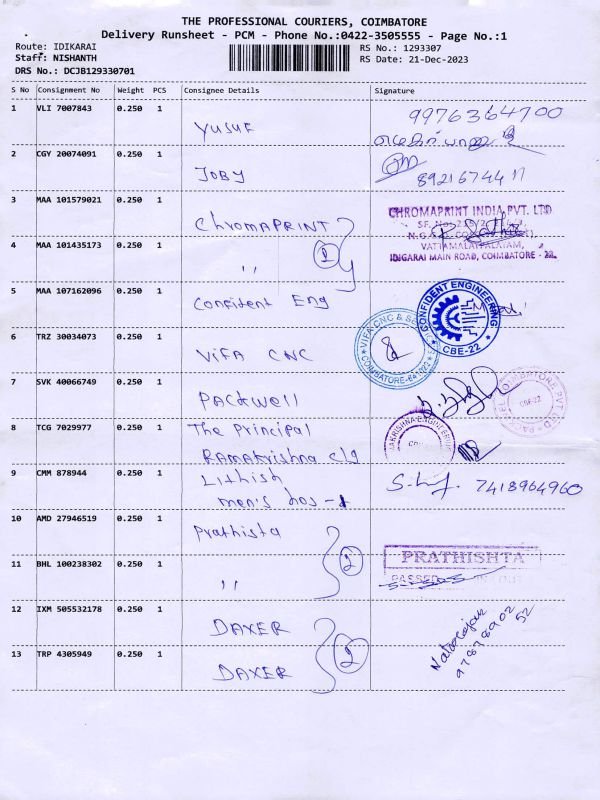 THE PROFESSIONAL COURIERS, COIMBATORE
Delivery Runsheet - PCM - Phone No.:0422-3505555 - Page No.:1
Route: IDIKARAI
RS No.: 1293307
Staff: NISHANTH
RS Date: 21-Dec-2023
DRS No.: DCJB129330701
S No Consignment No Weight PCS Consignee Details Signature
1 VLI 7007843 0.250 1
Yusuf
9976364700
2 CGY 20074091 0.250 1
JOBY
8921674417
3 MAA 101579021 0.250 1
ChromAPRINT
CHROMAPRINT INDIA PVT. LTD
VATTAMALAIPALAYAM,
IDIGARAI MAIN ROAD, COIMBATORE - 22.
4 MAA 101435173 0.250 1
,,
2
5 MAA 107162096 0.250 1
Confident Eng
CONFIDENT ENGINEERING
CBE-22
6 TRZ 30034073 0.250 1
ViFA CNC
VIFA CNC &
COIMBATORE-641022
7 SVK 40066749 0.250 1
PACKWell
CBE-22
8 TCG 7029977 0.250 1
The Principal
RAMAkrishna clg
9 CMM 878944 0.250 1
Lithish
men's hos -1
7418964960
10 AMD 27946519 0.250 1
Prathista
2
11 BHL 100238302 0.250 1
,,
PRATHISHTA
PASSED
12 IXM 505532178 0.250 1
DAXER
2
13 TRP 4305949 0.250 1
DAXER
Natarajan
97878902
52